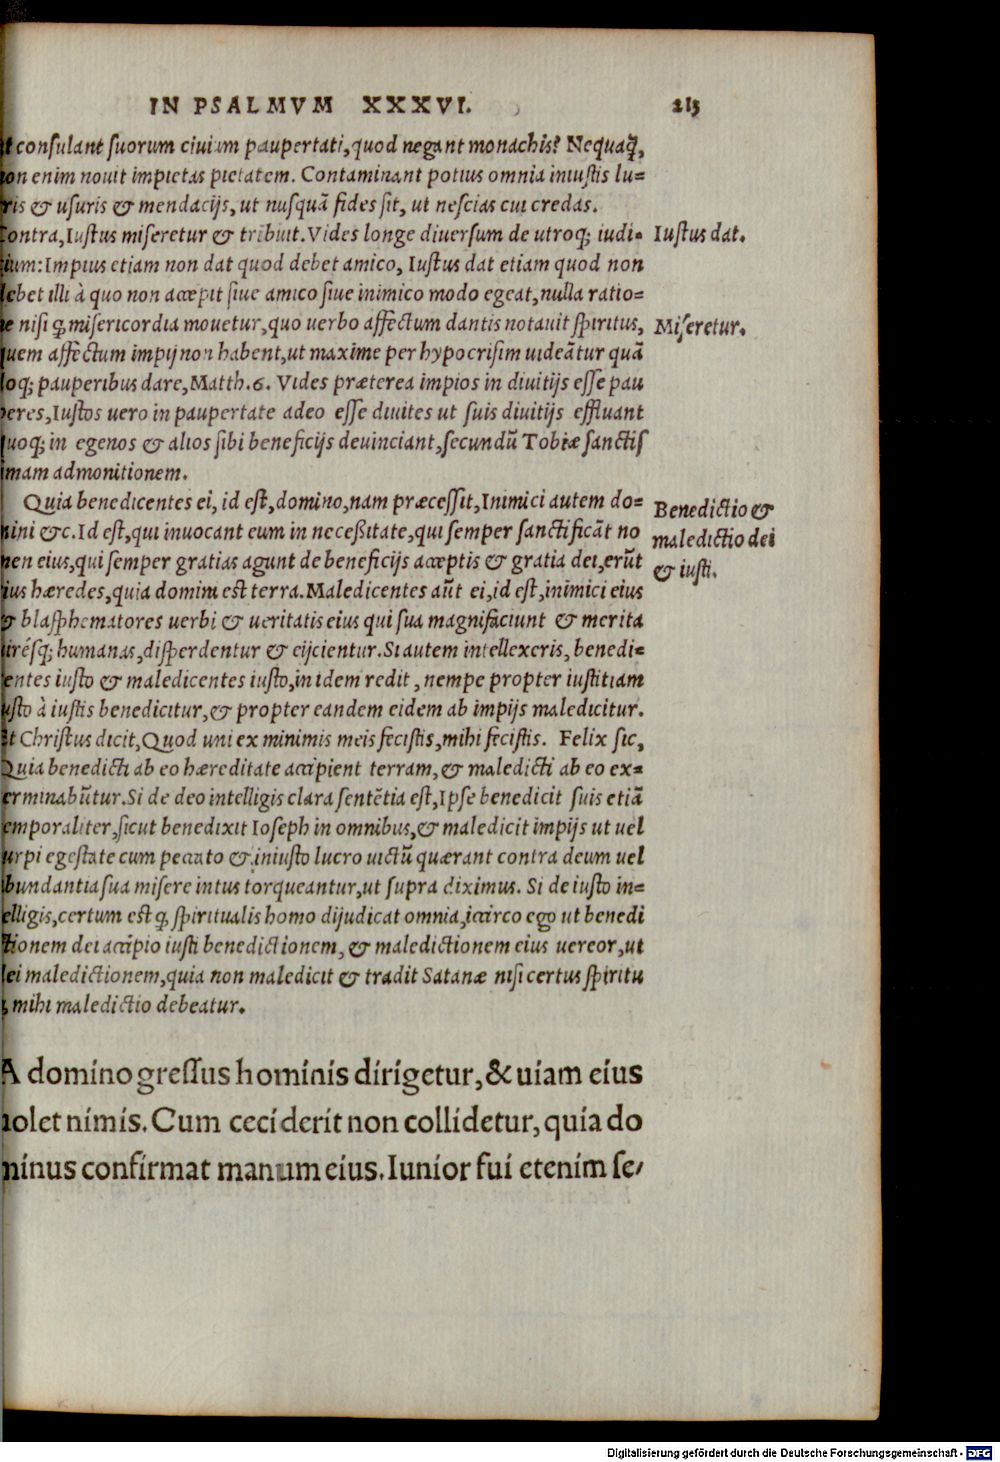 IN PSALMVM XXXVI. 213
ut consulant suorum ciuium paupertati, quod negant monachis? Nequaq̃,
non enim nouit impietas pietatem. Contaminant potius omnia iniustis lu=
cris & usuris & mendacijs, ut nusquã fides sit, ut nescias cui credas.
Contra, Iustus miseretur & tribuit. Vides longe diuersum de utroq; iudi=
Iustus dat.
cium: Impius etiam non dat quod debet amico, Iustus dat etiam quod non
debet illi à quo non accepit siue amico siue inimico modo egeat, nulla ratio=
ne nisi q̃ misericordia mouetur, quo uerbo affectum dantis notauit spiritus,
Miseretur.
quem affectum impij non habent, ut maxime per hypocrisim uideãtur quã
doq; pauperibus dare, Matth. 6. Vides præterea impios in diuitijs esse pau
peres, Iustos uero in paupertate adeo esse diuites ut suis diuitijs effluant
quoq; in egenos & alios sibi beneficijs deuinciant, secundũ Tobiæ sanctis
simam admonitionem.
Quia benedicentes ei, id est, domino, nam præcessit, Inimici autem do=
Benedictio &
mini &c. Id est, qui inuocant eum in necessitate, qui semper sanctificãt no
maledictio dei
men eius, qui semper gratias agunt de beneficijs acceptis & gratia dei, erũt
& iusti.
eius hæredes, quia domini est terra. Maledicentes aũt ei, id est, inimici eius
& blasphematores uerbi & ueritatis eius qui sua magnificiunt & merita
uirésq; humanas, disperdentur & eijcientur. Si autem intellexeris, benedi=
centes iusto & maledicentes iusto, in idem redit, nempe propter iustitiam
iusto à iustis benedicitur, & propter eandem eidem ab impijs maledicitur.
Et Christus dicit, Quod uni ex minimis meis fecistis, mihi fecistis. Felix sic,
Quia benedicti ab eo hæreditate accipient terram, & maledicti ab eo ex=
terminabũtur. Si de deo intelligis clara sentẽtia est, Ipse benedicit suis etiã
temporaliter, sicut benedixit Ioseph in omnibus, & maledicit impijs ut uel
turpi egestate cum peccato & iniusto lucro uictũ quærant contra deum uel
abundantia sua misere intus torqueantur, ut supra diximus. Si de iusto in=
telligis, certum est q̃ spiritualis homo dijudicat omnia, iccirco ego ut benedi
ctionem dei accipio iusti benedictionem, & maledictionem eius uereor, ut
dei maledictionem, quia non maledicit & tradit Satanæ nisi certus spiritu
q̃ mihi maledictio debeatur.
A domino gressus hominis dirigetur, & uiam eius
uolet nimis. Cum ceciderit non collidetur, quia do
minus confirmat manum eius. Iunior fui etenim se/
Digitalisierung gefördert durch die Deutsche Forschungsgemeinschaft - DFG